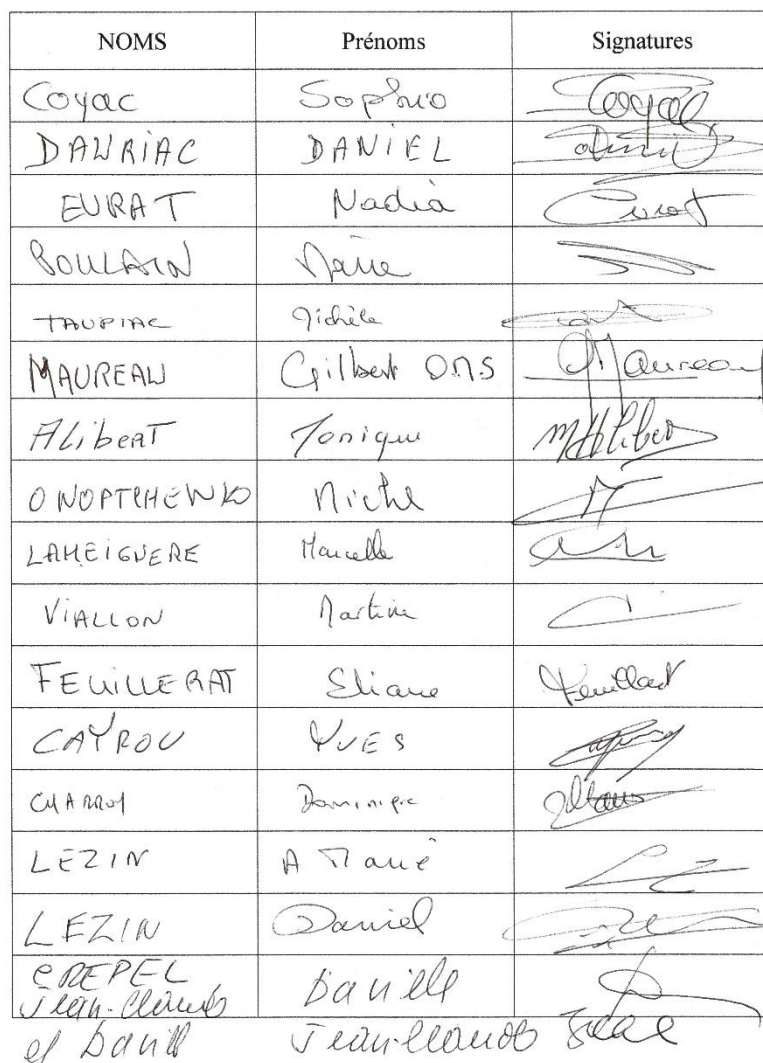 NOMS Prénoms Signatures
Coyac Sophie Coyac
DAURIAC DANIEL
EURAT Nadia Eurat
BOULAIN Marie
TAUPIAC Michèle
MAUREAU Gilbert Maureau
ALibeRT Monique MAliber
ONOPTCHENKO Michel
LAMEIGNERE Marcelle
VIALLON Martine
FEUILLERAT Eliane Feuillerat
CAYROU YVES
CHARROY Dominique
LEZIN A Marie
LEZIN Daniel
CREPEL Danielle
Jean-Claude
et Danielle Jean Claude